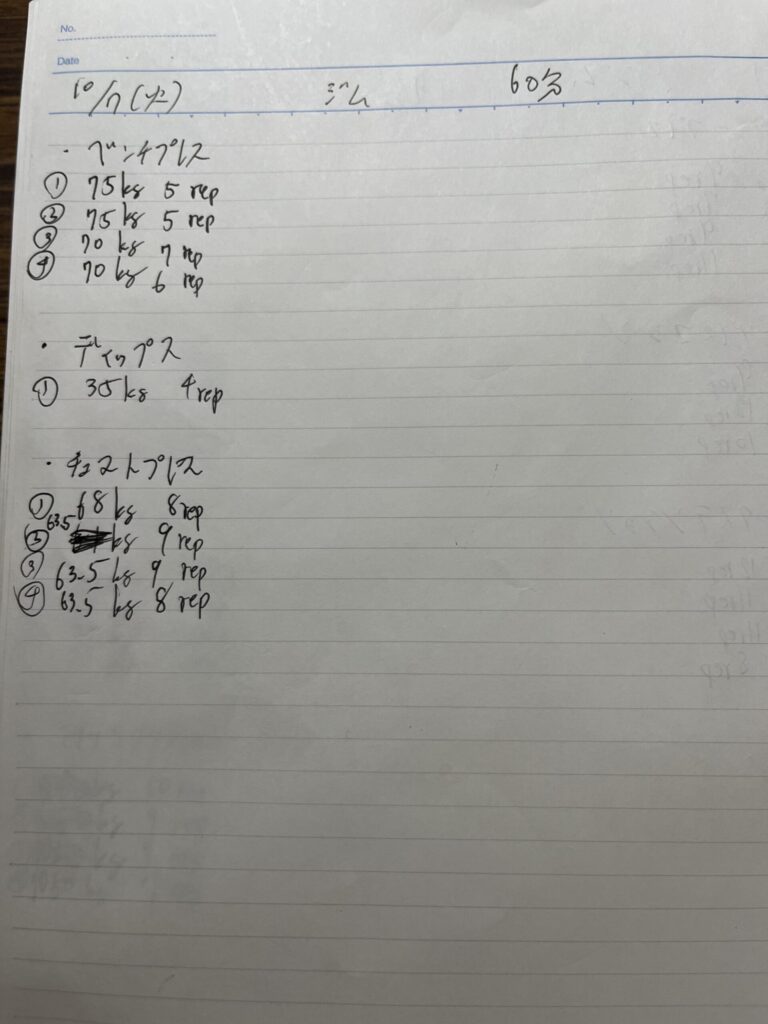 No.
Date
10/7(火) ジム 60分
・ベンチプレス
① 75kg 5 rep
② 75kg 5 rep
③ 70kg 7 rep
④ 70kg 6 rep
・ディップス
① 35kg 4rep
・チェストプレス
① 68kg 8rep
② 63.5 kg 9 rep
③ 63.5 kg 9 rep
④ 63.5 kg 8 rep